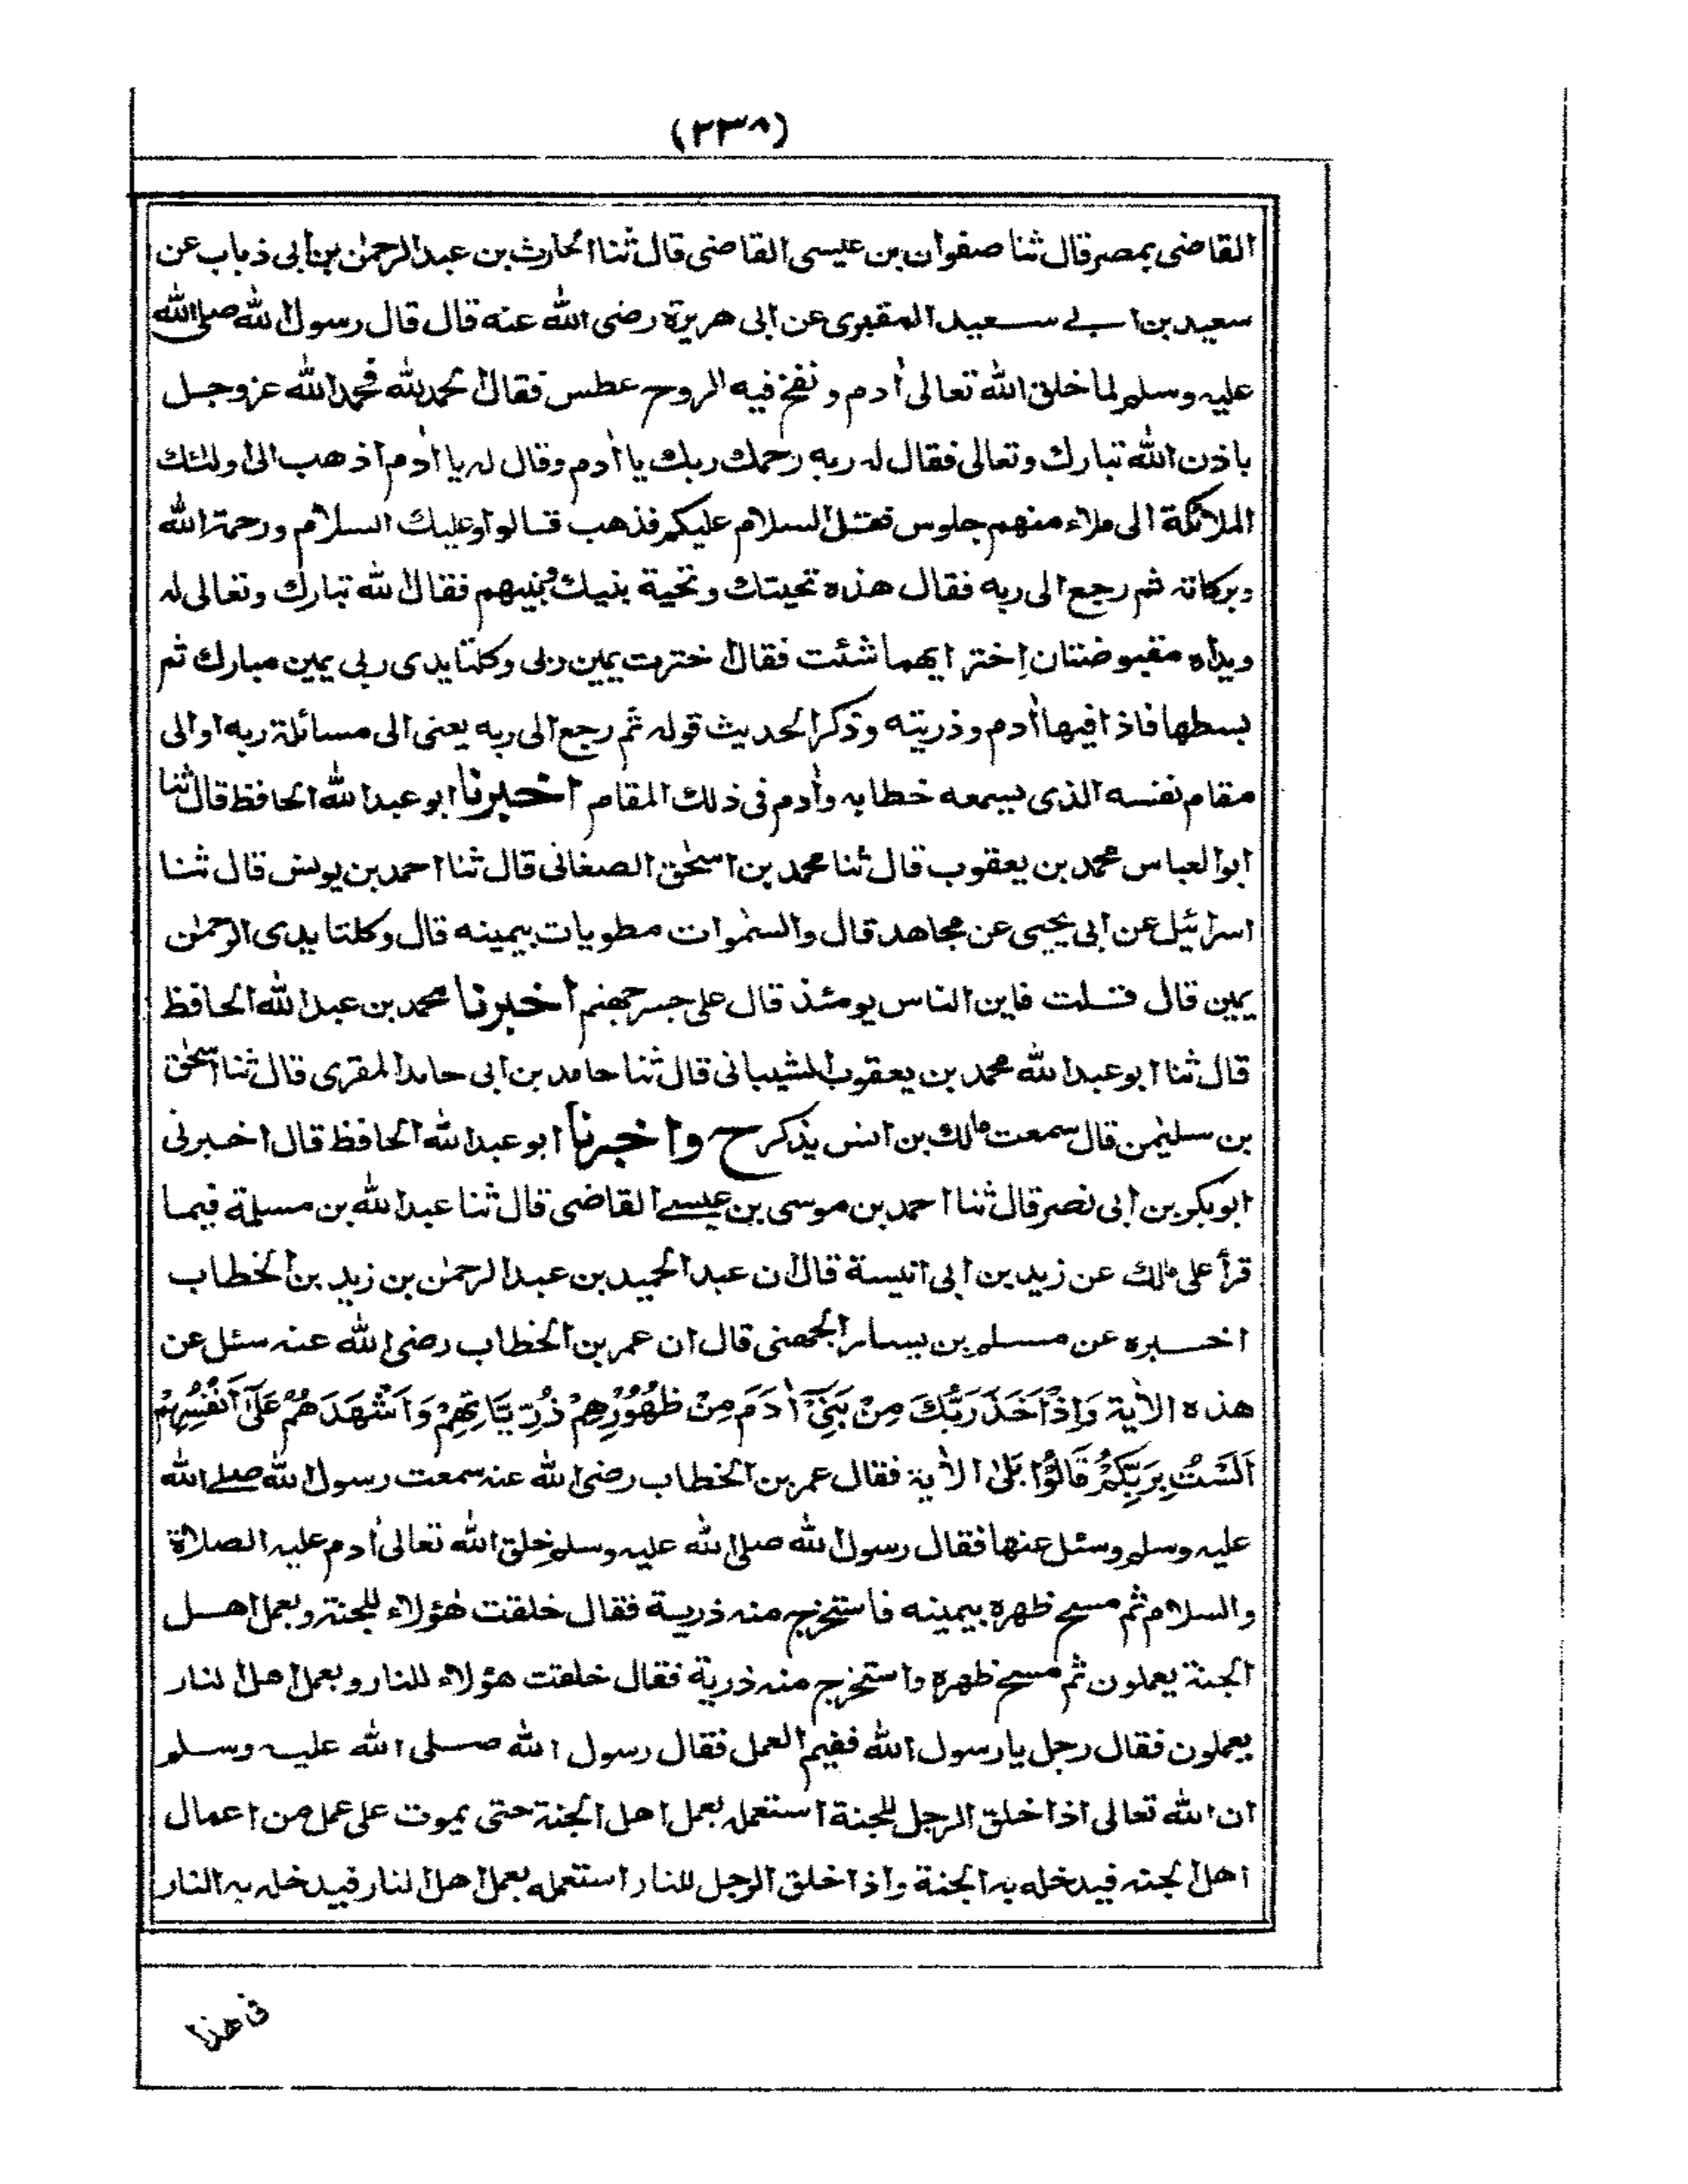 (٢٣٨)
القاضى بمصر قال ثنا صفوان بن عيسى القاضى قال ثنا الحارث بن عبد الرحمٰن بن أبى ذباب عن
سعيد بن ابے سعيد المقبرى عن ابى هريرة رضى الله عنه قال قال رسول الله صلى الله
عليه وسلم لما خلق الله تعالى أدم ونفخ فيه الروح عطس فقال الحمد لله فحمد الله عزوجل
باذن الله تبارك وتعالى فقال له ربه رحمك ربك يا أدم وقال له يا أدم اذهب الى اولئك
الملائكة الى ملاء منهم جلوس فقل السلام عليكم فذهب قالوا وعليك السلام ورحمة الله
وبركاته ثم رجع الى ربه فقال هذه تحيتك وتحية بنيك وبنيهم فقال الله تبارك وتعالى له
ويداه مقبوضتان إختر ايهما شئت فقال اخترت يمين ربى وكلتا يدى ربى يمين مبارك ثم
بسطها فاذا فيها أدم وذريته وذكر الحديث قوله ثم رجع الى ربه يعنى الى مسائلة ربه او الى
مقام نفسه الذى يسمعه خطابه وأدم فى ذلك المقام أخبرنا ابو عبد الله الحافظ قال ثنا
ابو العباس محمد بن يعقوب قال ثنا محمد بن اسحٰق الصغانى قال ثنا احمد بن يونس قال ثنا
اسرائيل عن ابى يحيى عن مجاهد قال والسمٰوات مطويات بيمينه قال وكلتا يدى الرحمٰن
يمين قال قلت فاين الناس يومئذ قال على جسر جهنم أخبرنا محمد بن عبد الله الحافظ
قال ثنا ابو عبد الله محمد بن يعقوب الشيبانى قال ثنا حامد بن ابى حامد المقرى قال ثنا اسحٰق
بن سليمٰن قال سمعت مالك بن انس يذكر ح واخبرنا ابو عبد الله الحافظ قال اخبرنى
ابو بكر بن أبى نصر قال ثنا احمد بن موسى بن عيسے القاضى قال ثنا عبد الله بن مسلمة فيما
قرأ على مالك عن زيد بن ابى انيسة قال ان عبد الحميد بن عبد الرحمٰن بن زيد بن الخطاب
اخبره عن مسلم بن يسار الجهنى قال ان عمر بن الخطاب رضى الله عنه سئل عن
هذه الأية وَاِذْ اَخَذَ رَبُّكَ مِنْ بَنِىْٓ أدَمَ مِنْ ظُهُوْرِهِمْ ذُرِّيَّاتِهِمْ وَاَشْهَدَهُمْ عَلٰٓى اَنْفُسِهِمْ
اَلَسْتُ بِرَبِّكُمْ قَالُوْا بَلىٰ الأية فقال عمر بن الخطاب رضى الله عنه سمعت رسول الله صلے الله
عليه وسلم وسئل عنها فقال رسول الله صلى الله عليه وسلم خلق الله تعالى أدم عليه الصلاة
والسلام ثم مسح ظهره بيمينه فاستخرج منه ذرية فقال خلقت هٰؤلاء للجنة وبعمل اهل
الجنة يعملون ثم مسح ظهره واستخرج منه ذرية فقال خلقت هؤلاء للنار وبعمل اهل النار
يعملون فقال رجل يا رسول الله ففيم العمل فقال رسول الله صلى الله عليه وسلم
ان الله تعالى اذا خلق الرجل للجنة استعمله بعمل اهل الجنة حتى يموت على عمل من اعمال
اهل الجنة فيدخله به الجنة واذا خلق الرجل للنار استعمله بعمل اهل النار فيدخله به النار
ف هذا